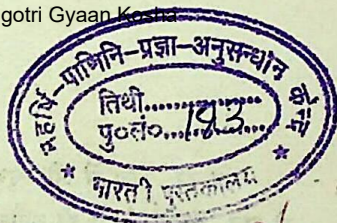 gotri Gyaan Kosha
महर्षि-पाणिनि-प्रज्ञा-अनुसन्धान केन्द्र
तिथी..........
पु०सं०....183....
* भारती पुस्तकालय *